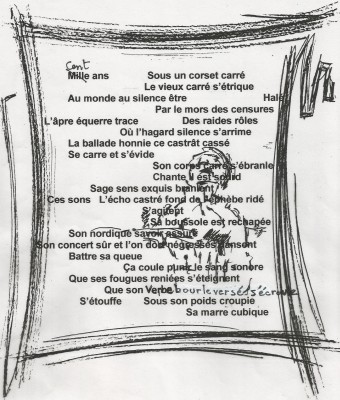 Cent
Mille ans Sous un corset carré
Le vieux carré s'étrique
Au monde au silence être Hale
Par le mors des censures
L'âpre équerre trace Des raides rôles
Où l'hagard silence s'arrime
La ballade honnie ce castrât cassé
Se carre et s'évide
Son corps carré s'ébranle
Chante il est sourd
Sage sens exquis branlent
Ces sons L'écho castré fond de l'éphèbe ridé
S'agitent
Sa boussole est rechapée
Son nordique savoir assuré
Son concert sûr et l'on dois négresses pansent
Battre sa queue
Ça coule punic le sang sonore
Que ses fougues reniées s'éteignent
Que son Verbe bouleversé s'écroule
S'étouffe Sous son poids croupie
Sa marre cubique